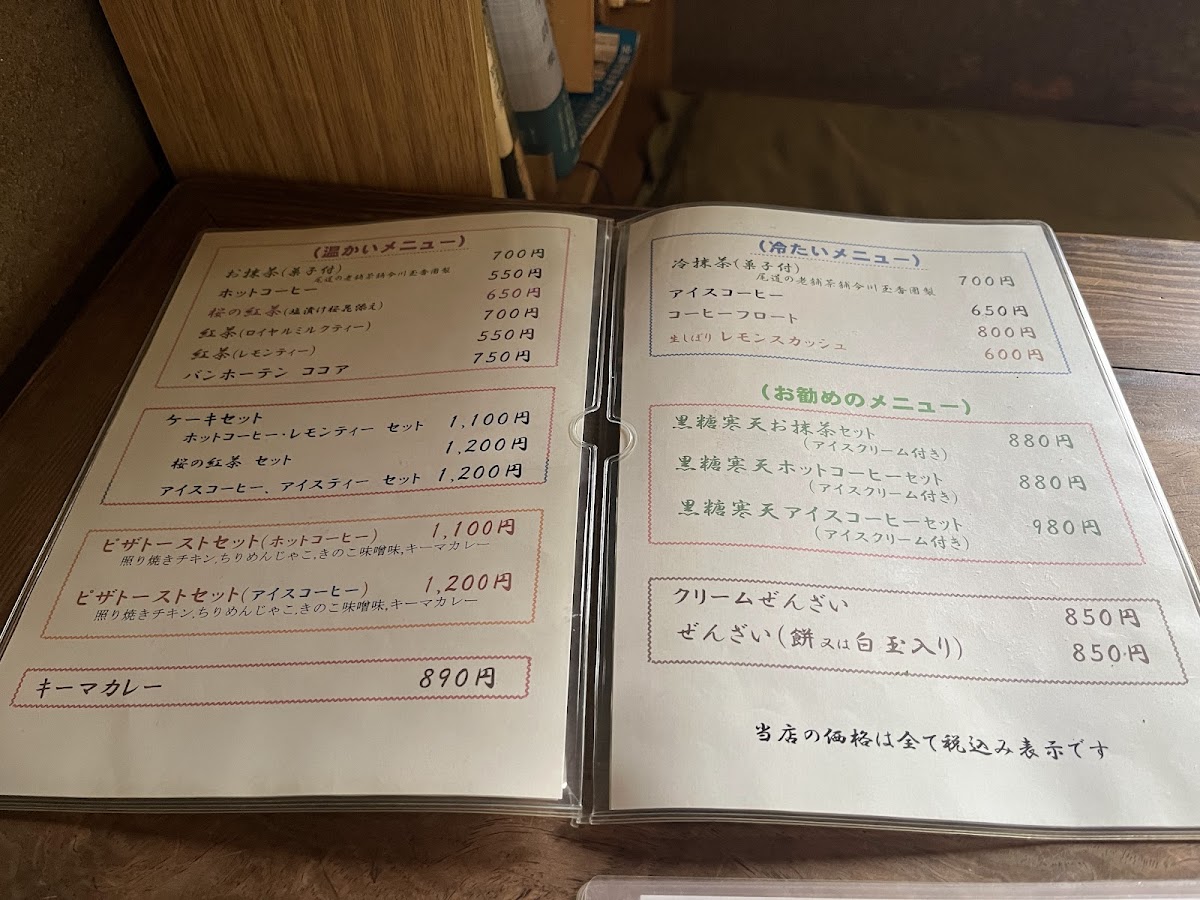 (温かいメニュー)
お抹茶(菓子付) 700円
尾道の老舗茶舗今川玉香園製
ホットコーヒー 550円
桜の紅茶(塩漬け桜花添え) 650円
紅茶(ロイヤルミルクティー) 700円
紅茶(レモンティー) 550円
バンホーテン ココア 750円
ケーキセット
ホットコーヒー・レモンティー セット 1,100円
桜の紅茶 セット 1,200円
アイスコーヒー、アイスティー セット 1,200円
ピザトーストセット(ホットコーヒー) 1,100円
照り焼きチキン,ちりめんじゃこ,きのこ味噌味,キーマカレー
ピザトーストセット(アイスコーヒー) 1,200円
照り焼きチキン,ちりめんじゃこ,きのこ味噌味,キーマカレー
キーマカレー 890円
(冷たいメニュー)
冷抹茶(菓子付) 700円
尾道の老舗茶舗今川玉香園製
アイスコーヒー 650円
コーヒーフロート 800円
生しぼり レモンスカッシュ 600円
(お勧めのメニュー)
黒糖寒天お抹茶セット 880円
(アイスクリーム付き)
黒糖寒天ホットコーヒーセット 880円
(アイスクリーム付き)
黒糖寒天アイスコーヒーセット 980円
(アイスクリーム付き)
クリームぜんざい 850円
ぜんざい(餅又は白玉入り) 850円
当店の価格は全て税込み表示です